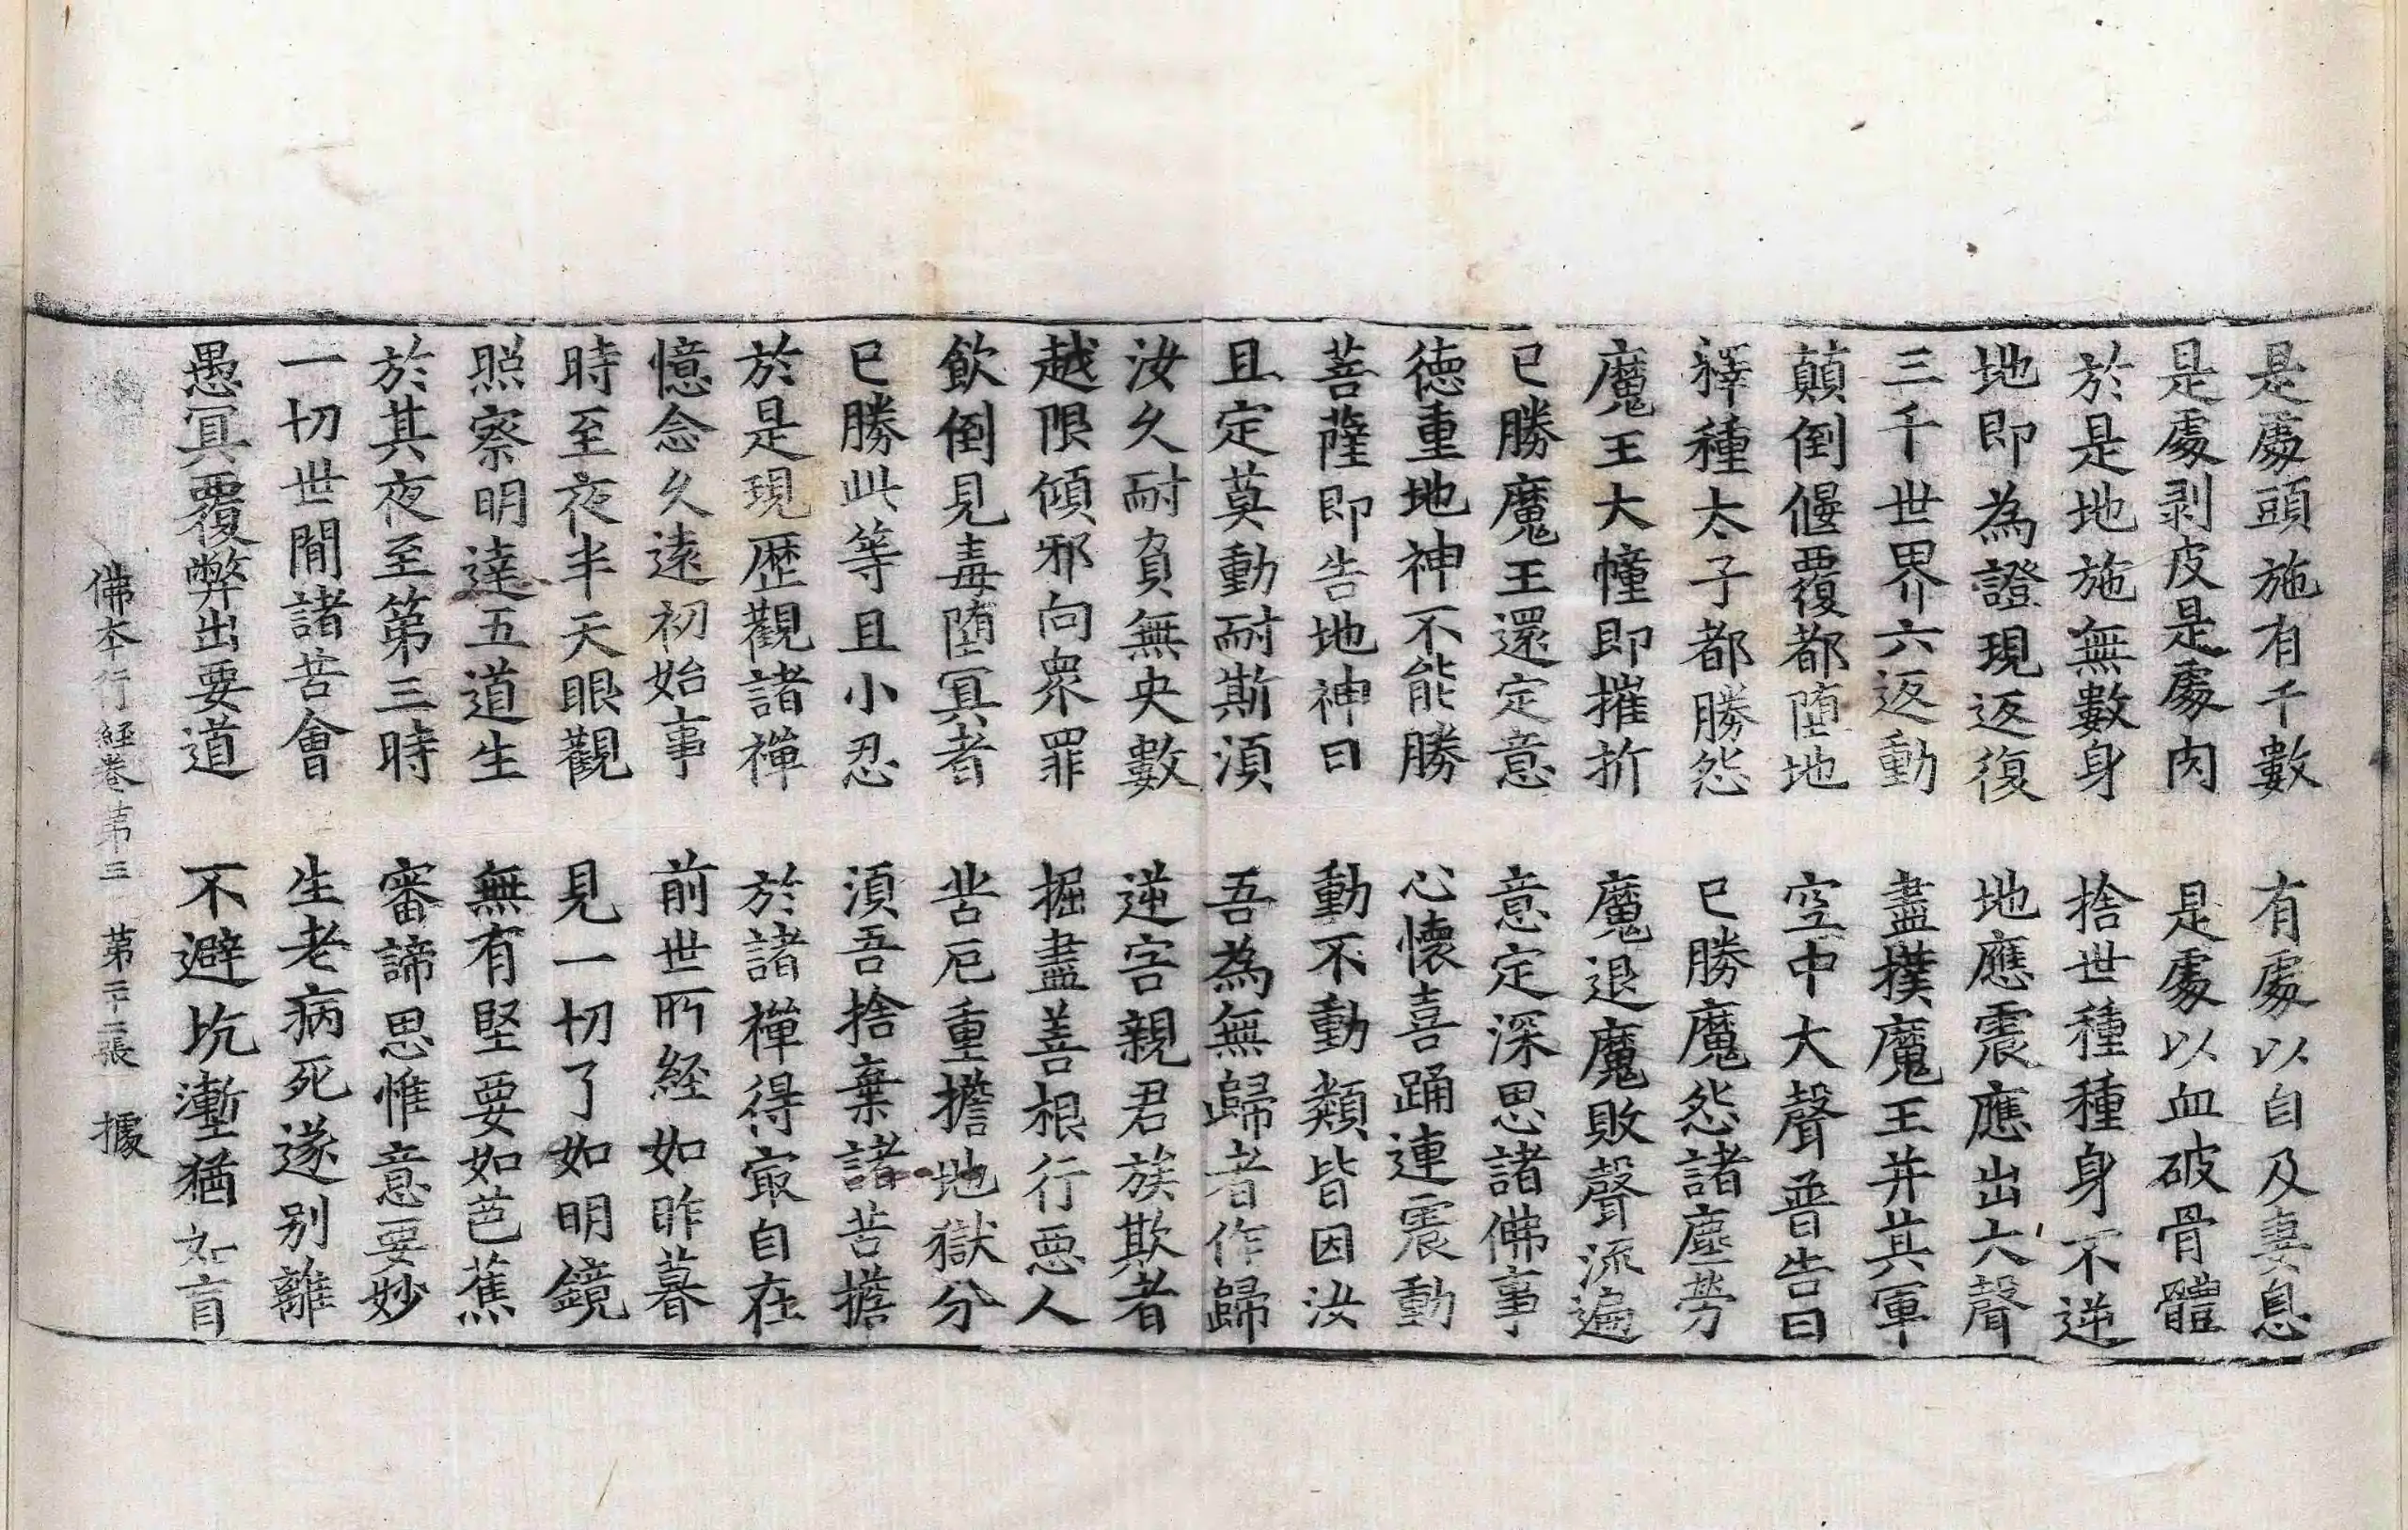 是處頭施有千數　有處以自及妻息
是處剥皮是處肉　是處以血破骨體
於是地施無數身　捨世種種身不逆
地即為證現返復　地應震應出六聲
三千世界六返動　盡撲魔王并其軍
顛倒偃覆都墮地　空中大聲普告曰
釋種太子都勝怨　已勝魔怨諸塵勞
魔王大幢即摧折　魔退魔敗聲流遍
已勝魔王還定意　意定深思諸佛事
德重地神不能勝　心懷喜踊連震動
菩薩即告地神曰　動不動類皆因汝
且定莫動耐斯湏　吾為無歸者作歸
汝久耐負無央數　逆害親君族欺者
越限傾邪向衆罪　掘盡善根行惡人
飲倒見毒墮冥者　苦厄重擔地獄分
已勝此等且小忍　湏吾捨棄諸苦擔
於是現歷觀諸禪　於諸禪得寂自在
憶念久遠初始事　前世所經如昨暮
時至夜半天眼觀　見一切了如明鏡
照察明達五道生　無有堅要如芭蕉
於其夜至第三時　審諦思惟意要妙
一切世間諸苦會　生老病死遂別離
愚冥覆弊出要道　不避坑塹猶如盲
佛本行經卷第三　第二十二張　據